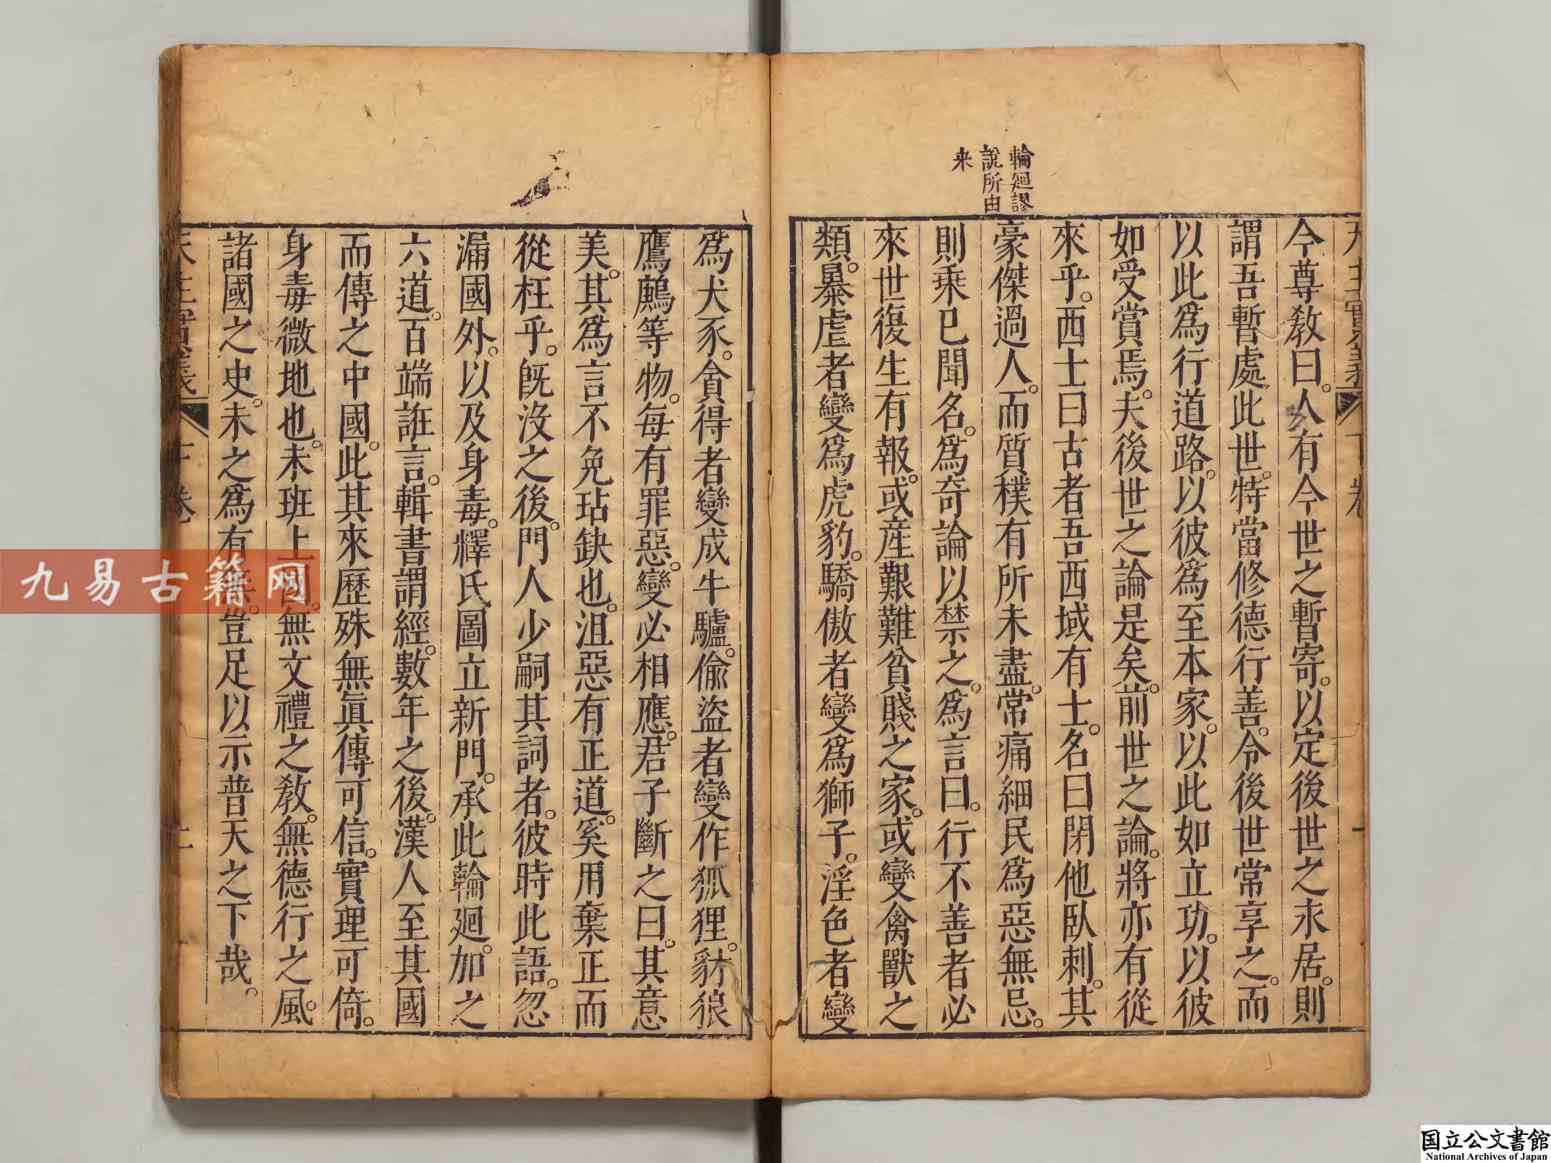 輪廻謬
說所由
来
今尊教曰。人有今世之暫寄。以定後世之永居。則
謂吾暫處此世。特當修德行善。令後世常享之。而
以此為行道路。以彼為至本家。以此如立功。以彼
如受賞焉。夫後世之論是矣。前世之論。將亦有從
來乎。西士曰古者吾西域有士。名曰閉他臥剌。其
豪傑過人。而質樸有所未盡。常痛細民為惡無忌。
則乗已聞名。為奇論以禁之。為言曰。行不善者必
來世復生有報。或産艱難貧賤之家。或變禽獸之
類。暴虐者變為虎豹。驕傲者變為獅子。淫色者變
為犬豕。貪得者變成牛驢。偷盜者變作狐狸。豺狼
鷹鸇等物。每有罪惡。變必相應。君子斷之曰。其意
美。其為言不免玷缺也。沮惡有正道。奚用棄正而
從枉乎。旣沒之後。門人少嗣其詞者。彼時此語。忽
漏國外。以及身毒。釋氏圖立新門。承此輪廻。加之
六道。百端誑言。輯書謂經。數年之後。漢人至其國
而傳之中國。此其來歷殊無眞傳可信。實理可倚。
身毒微地也。未班上 無文禮之教。無德行之風。
諸國之史。未之為有 豈足以示普天之下哉。
天主實義
下卷
九易古籍网
国立公文書館
National Archives of Japan